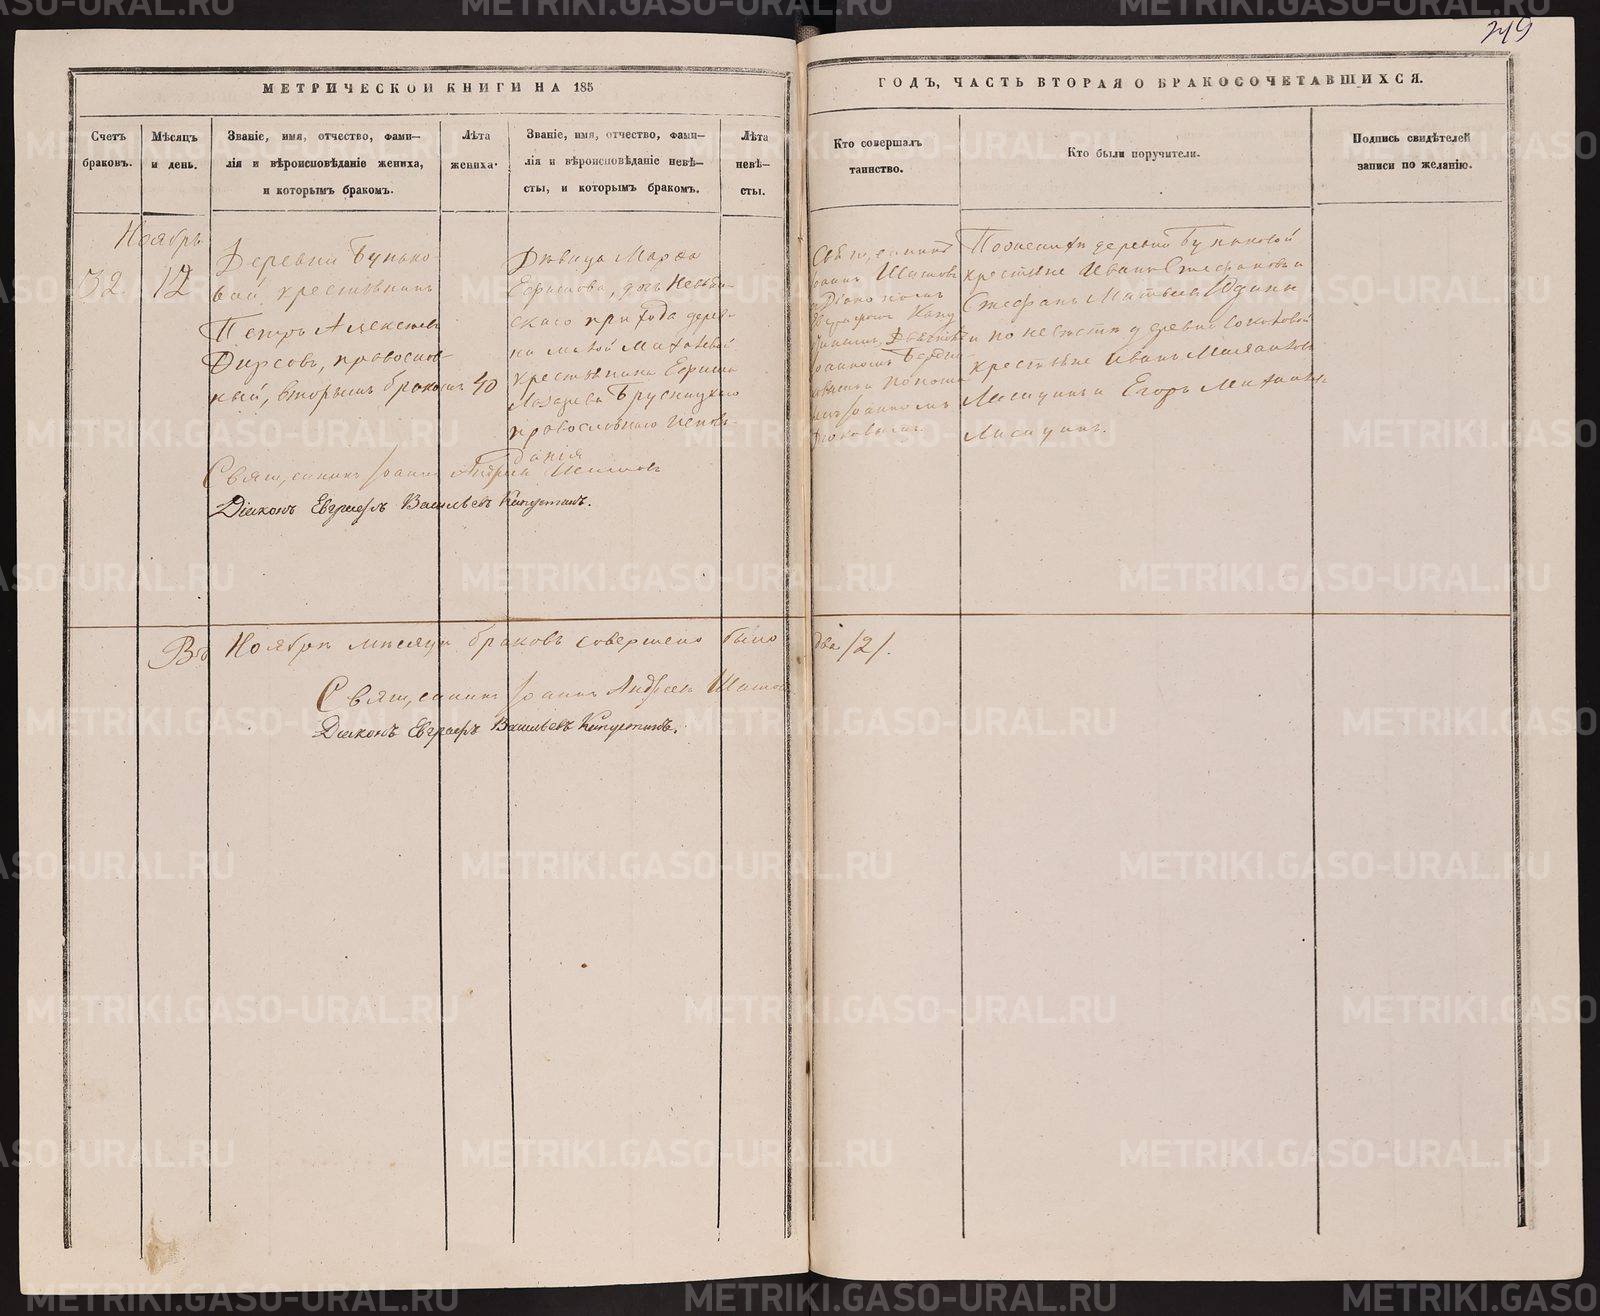 249
МЕТРИЧЕСКОЙ КНИГИ НА 185
ГОДЪ, ЧАСТЬ ВТОРАЯ О БРАКОСОЧЕТАВШИХСЯ.
Счетъ
браковъ.
Мѣсяцъ
и день.
Званіе, имя, отчество, фами—
лія и вѣроисповѣданіе жениха,
и которымъ бракомъ.
Лѣта
жениха.
Званіе, имя, отчество, фами—
лія и вѣроисповѣданіе невѣ—
сты, и которымъ бракомъ.
Лѣта
невѣ—
сты.
Кто совершалъ
таинство.
Кто были поручители.
Подпись свидѣтелей
записи по желанію.
Ноябрь
32
12
Деревни Бунько-
вой, крестьянинъ
Петръ Алексѣевъ
Фирсовъ, православ-
ный, вторымъ бракомъ
40
Дѣвица Марѳа
Ефимова, дочь Невьян-
скаго прихода дерев-
крестьянина Ефима
Лазарева Брусницына
православнаго исповѣ-
данія
Священникъ
Іоаннъ Шишовъ
съ Діакономъ
По женихѣ деревни Буньковой
крестьяне Иванъ Стефановъ и
Стефанъ Матвѣевъ Юдины
и по невѣстѣ деревни Соколовой
крестьяне Иванъ
Лисицынъ и Егоръ
Лисицынъ.
Священникъ Іоаннъ Андреевъ Шишовъ
Діаконъ Евграфъ Васильевъ Капустинъ.
Въ Ноябрѣ мѣсяцѣ браковъ совершено было два /2/.
Священникъ Іоаннъ Андреевъ Шишовъ
Діаконъ Евграфъ Васильевъ Капустинъ.
METRIKI.GASO-URAL.RU